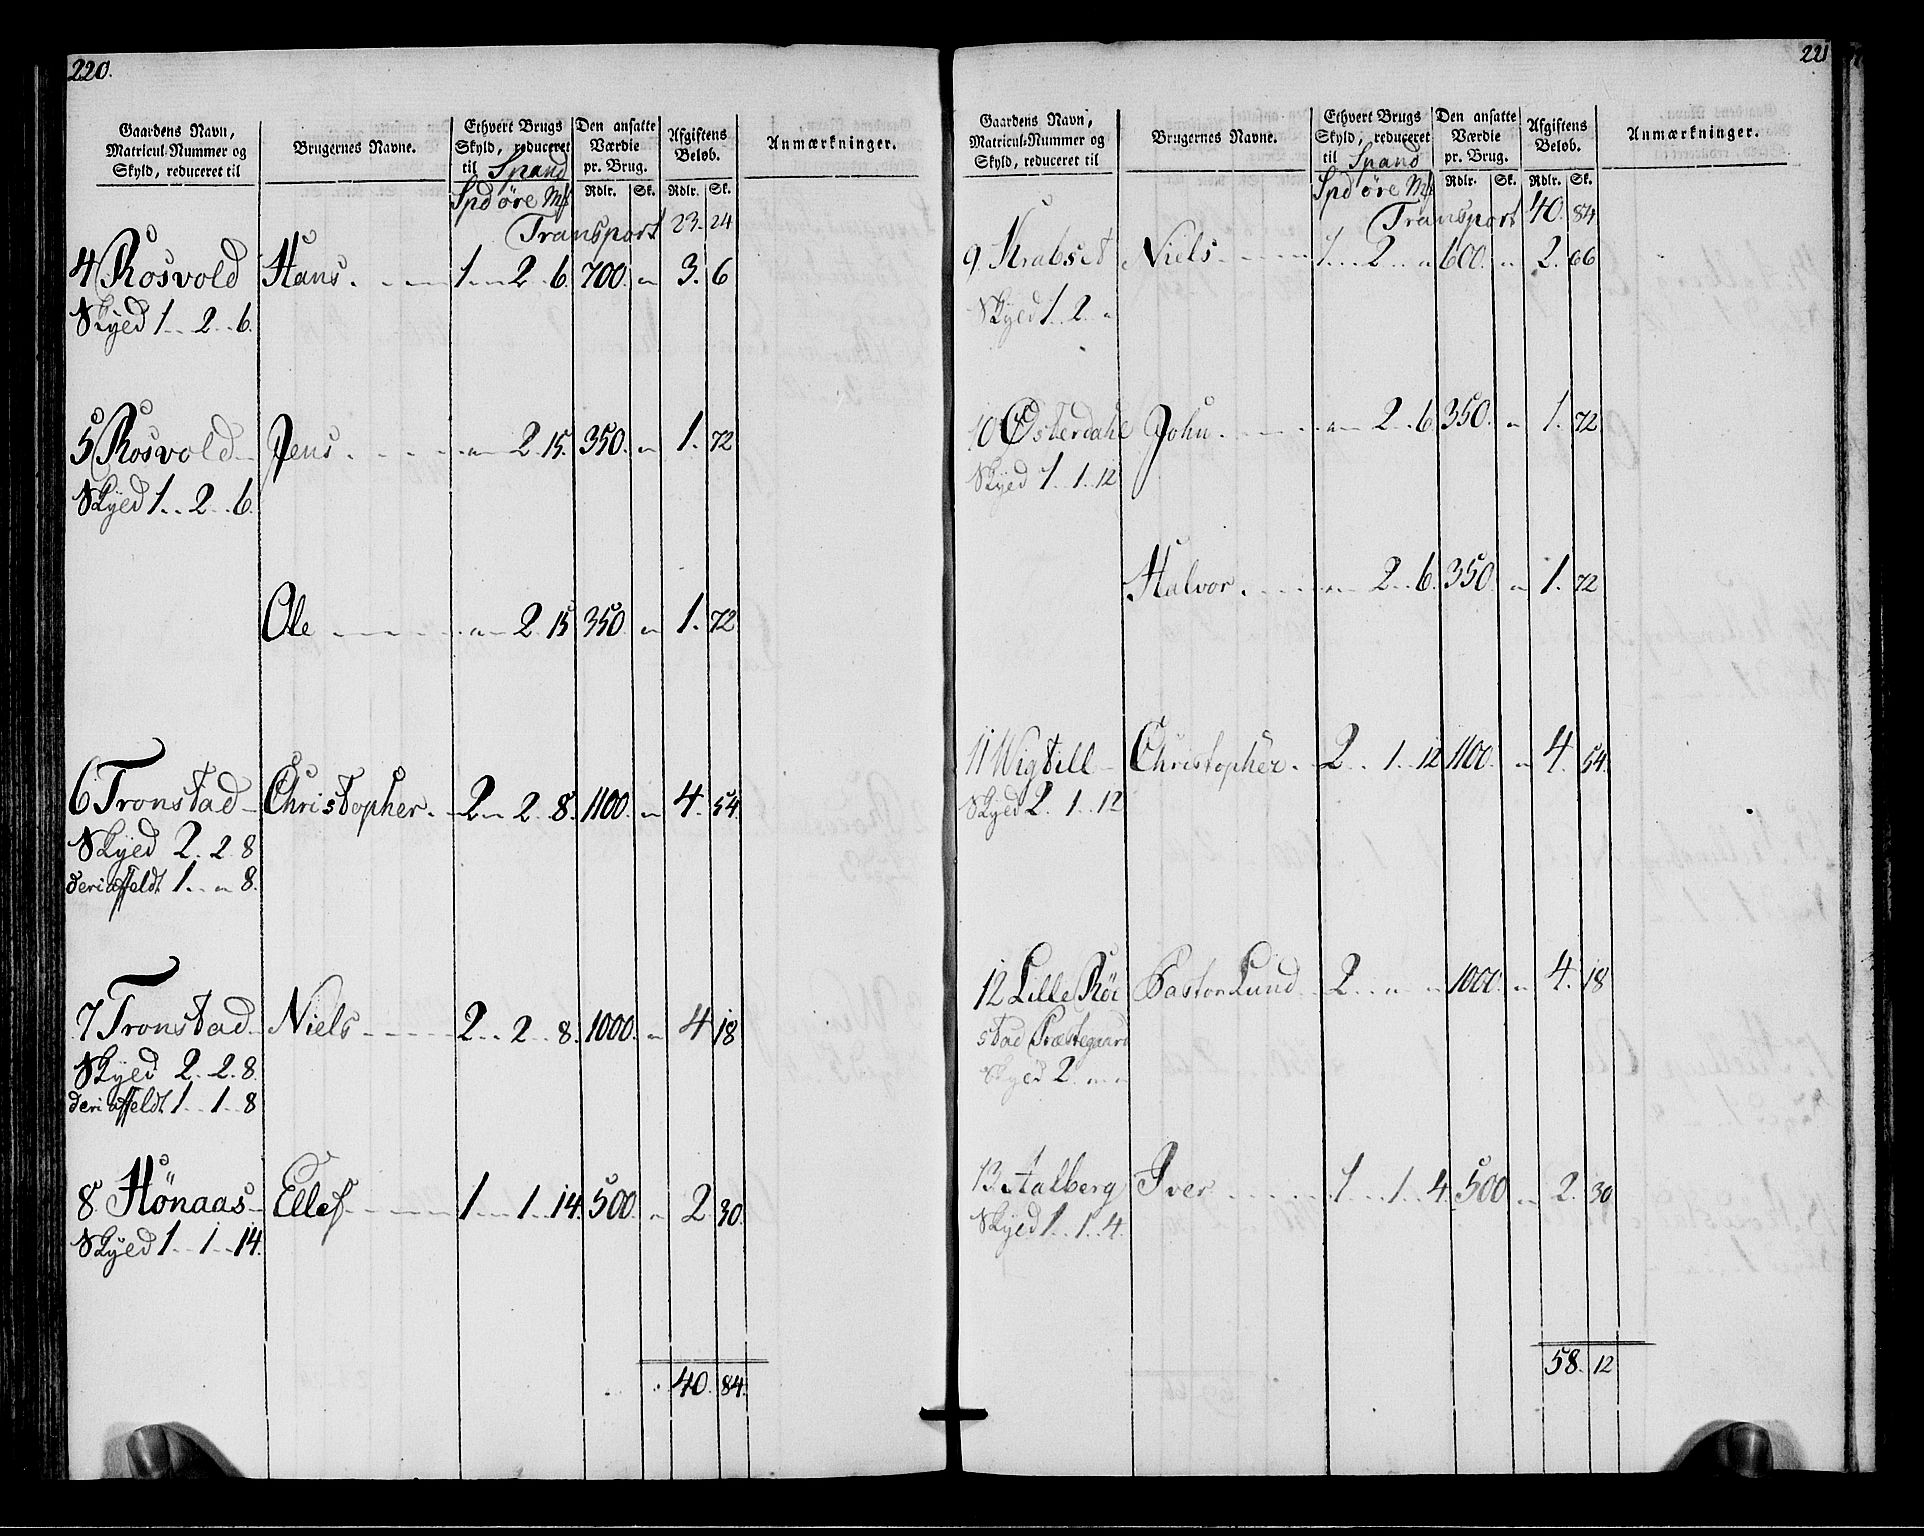 220.
Gaardens Navn, Matricul-Nummer og Skyld, reduceret til | Brugernes Navne. | Ethvert Brugs Skyld, reduceret til Spand | Den ansatte Værdie pr. Brug. | Afgiftens Beløb. | Anmærkninger.
Spd öre Mf | Rdlr. | Sk. | Rdlr. | Sk.
Transport 23. 24
4 Rosvold Hans. 1 .. 2 .. 6. 700. " 3. 6
Skyed 1 .. 2 .. 6.
5 Rosvold Jens. " 2. 15. 350. " 1. 72
Skyed 1 .. 2 .. 6.
Ole " 2. 15 350. " 1. 72
6 Tronstad Christopher. 2 " 2. 8. 1100. " 4. 54
Skyed 2. 2. 8
deri affeldt 1 .. " 8.
7 Tronstad Niels 2 .. 2 .. 8. 1000. " 4 18
Skyed 2 .. 2. 8.
deri affeldt 1 .. 1 .. 8
8 Hönaas Ellef 1 .. 1 .. 14. 500. " 2 30.
Skyed 1 .. 1 .. 14.
40. 84.
221
Gaardens Navn, Matricul-Nummer og Skyld, reduceret til | Brugernes Navne. | Ethvert Brugs Skyld, reduceret til Spand | Den ansatte Værdie pr. Brug. | Afgiftens Beløb. | Anmærkninger.
Spd öre Mf | Rdlr. | Sk. | Rdlr. | Sk.
Transport 40. 84
9. Krabset Niels 1 .. 2 .. " 600. " 2. 66
Skyed 1. 2 .. "
10 Østerdahl John. " 2 .. 6. 350. " 1. 72
Skyed 1 .. 1 .. 12
Halvor. " 2 .. 6. 350. " 1. 72
11 Wigtill Christopher. 2 .. 1 .. 12 1100. " 4. 54.
Skyed 2. 1 .. 12
12 Lille Röe Pastor Lund 2 .. " " 1000. " 4. 18
stad Præstegaard
Skyed 2. " "
13 Aalberg Iver 1 .. 1 .. 4. 500 " 2. 30
Skyed 1 .. 1 .. 4.
58. 12